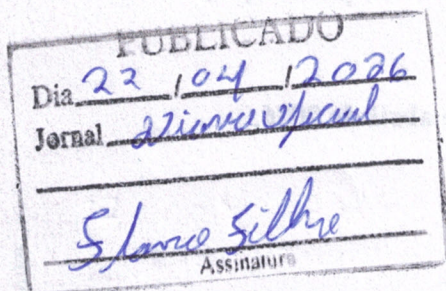 PUBLICADO
Dia 22 / 04 / 2026
Jornal Diario Oficial
Silva
Assinatura